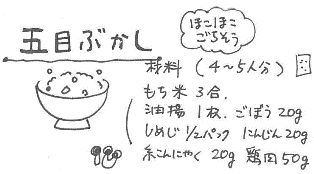 五目ぶかし
ほこほこ
ごちそう
材料 (4〜5人分)
もち米 3合.
油揚 1枚. ごぼう 20g
しめじ 1/2パック にんじん 20g
糸こんにゃく 20g 鶏肉 50g